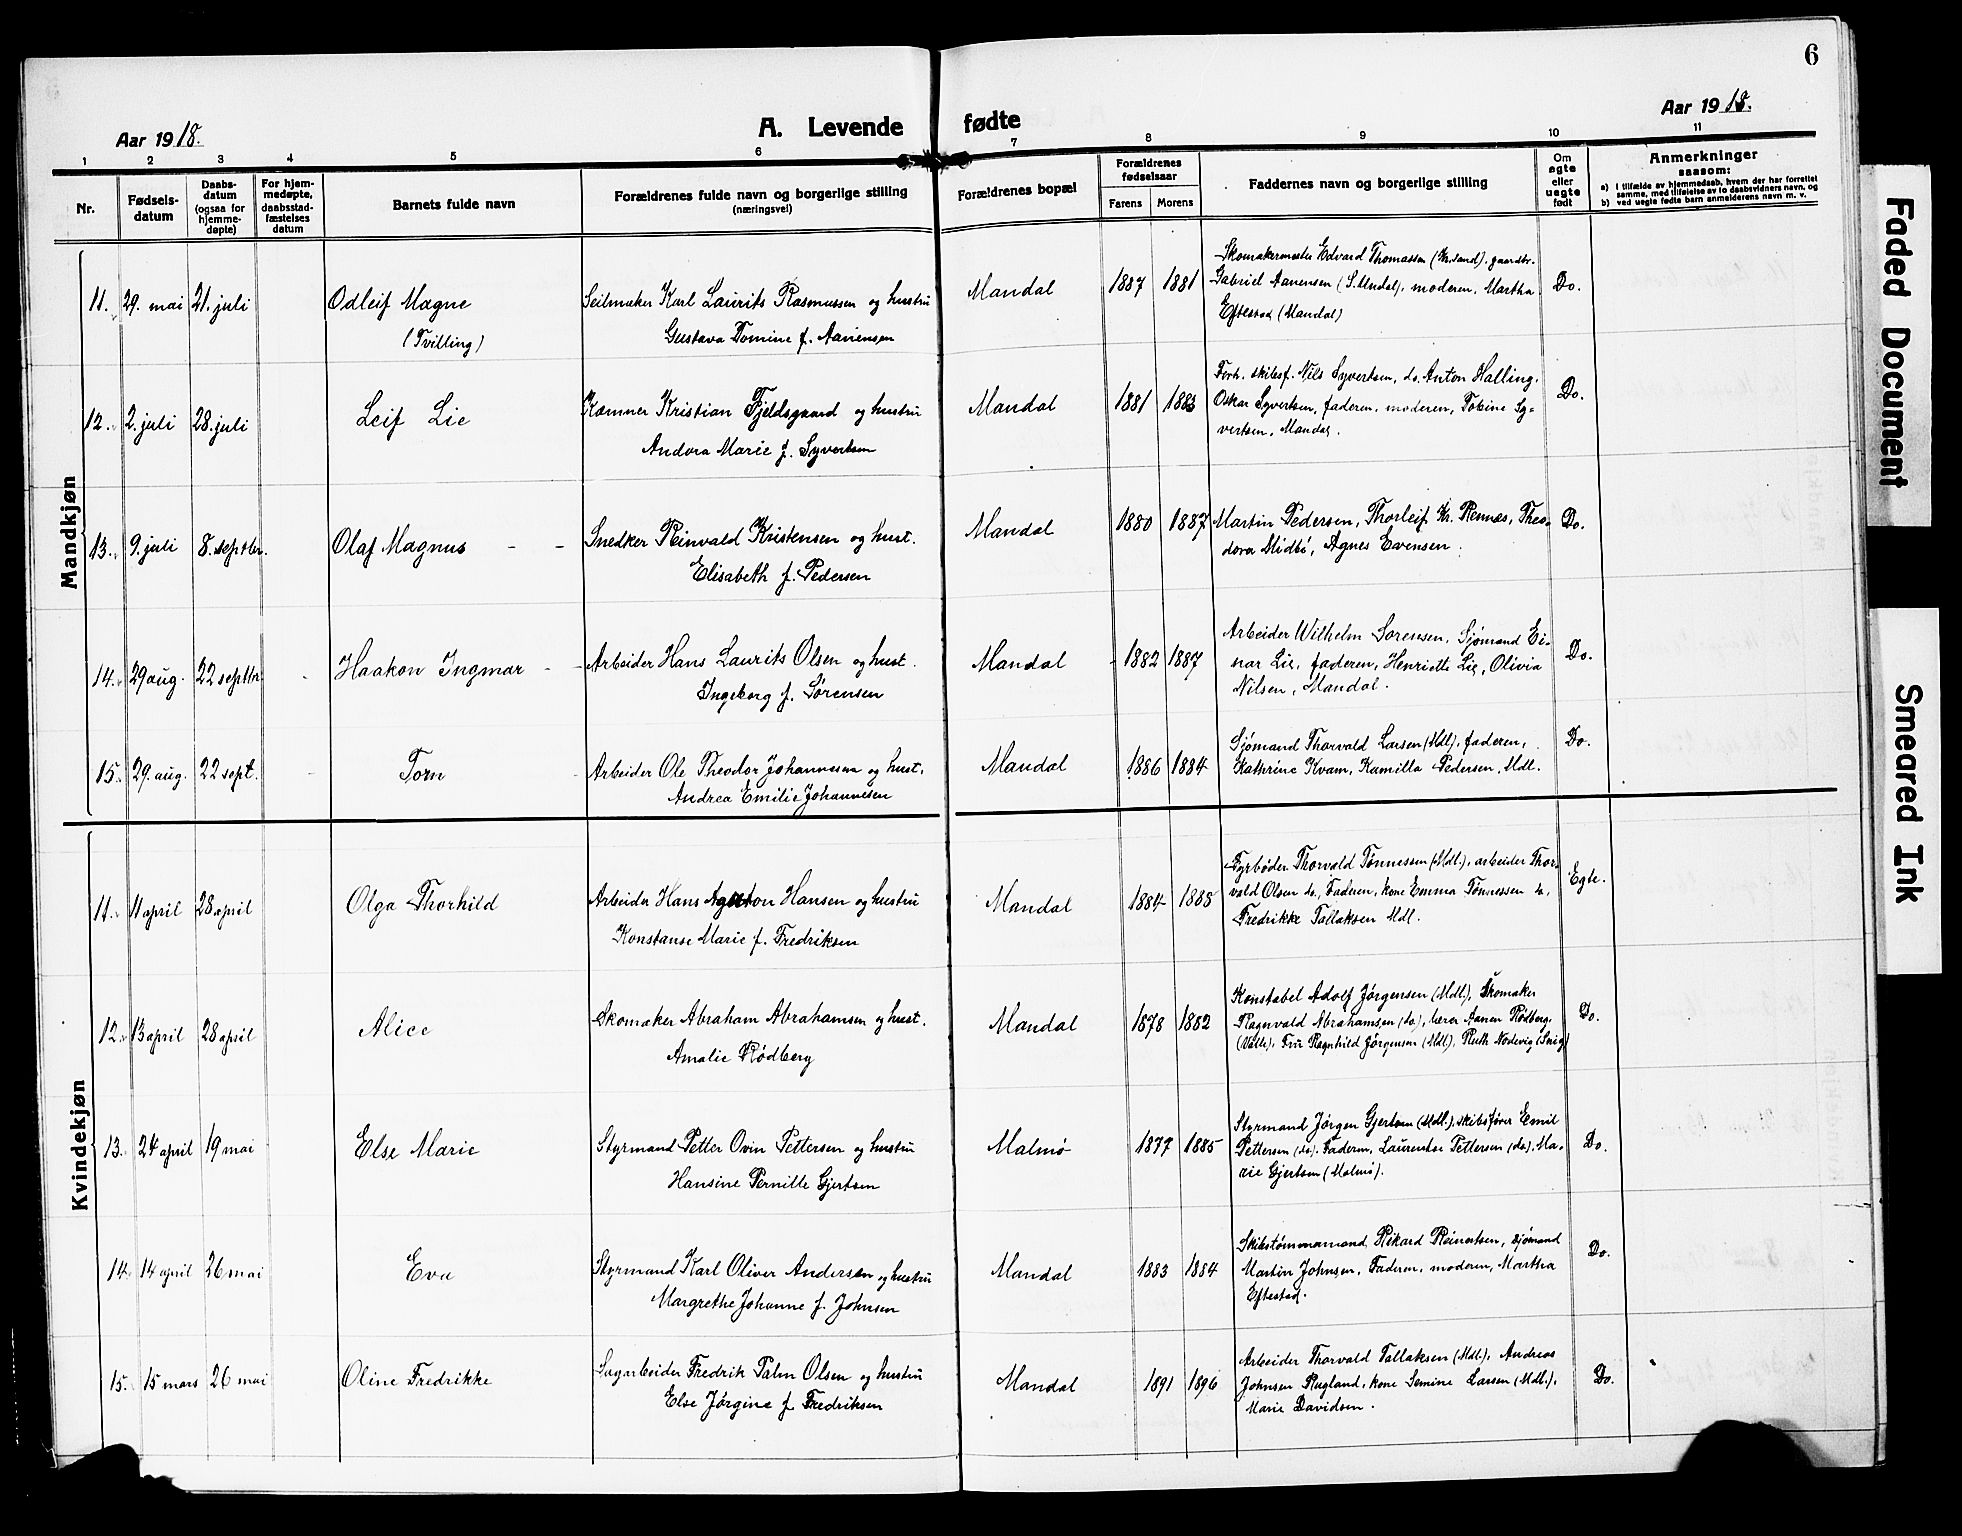 6
Aar 1918.
A. Levende fødte
Aar 1918.
1 2 3 4 5 6 7 8 9 10 11
Nr.
Fødsels-
datum
Daabs-
datum
(ogsaa for
hjemme-
døpte)
For hjem-
medøpte,
daabsstad-
fæstelses
datum
Barnets fulde navn
Forældrenes fulde navn og borgerlige stilling
(næringsvei)
Forældrenes bopæl
Forældrenes
fødselsaar
Farens Morens
Faddernes navn og borgerlige stilling
Om
egte
eller
uegte
født
Anmerkninger
saasom:
a) i tilfælde av hjemmedaab, hvem der har forrettet
samme, med tilføielse av to daabsvidners navn, og
b) ved uegte fødte barn anmelderens navn m. v.
Mandkjøn
11. 29. mai 21. juli Odleif Magne
(Tvilling)
Seilmaker Karl Laurits Rasmussen og hustru
Gustava Tomine f. Aanensen
Mandal 1887 1881
Skomakermester Edvard Thomassen (Kr.sand), gaardbr.
Gabriel Aanensen (S. Undal), moderen, Martha
Eftestad (Mandal)
Do.
12. 2. juli 28. juli Leif Lie
Kæmner Kristian Fjeldsgaard og hustru
Andora Marie f. Syvertsen
Mandal 1881 1883
Forh. skibsf. Nils Syvertsen, do. Anton Halling,
Oskar Syvertsen, faderen, moderen, Tobine Sy-
vertsen, Mandal.
Do.
13. 9. juli 8. septbr. Olaf Magnus - -
Snedker Reinvald Kristensen og hust.
Elisabeth f. Pedersen
Mandal 1880 1887
Martin Pedersen, Thorleif Kr. Rennæs, Theo-
dora Midbø, Agnes Evensen.
Do.
14. 29 aug. 22 septbr Haakon Ingmar - -
Arbeider Hans Laurits Olsen og hust.
Ingeborg f. Sørensen
Mandal 1882 1887
Arbeider Wilhelm Sorensen, Sjømand Ei-
nar Lie, faderen, Henriette Lie, Olivia
Nilsen, Mandal.
Do.
15. 29. aug. 22 sept. Torn
Arbeider Ole Theodor Johannesen og hust.
Andrea Emilie Johannesen
Mandal 1886 1884
Sjømand Thorvald Larsen (Mdl), faderen,
Kathrine Kvam, Kamilla Pedersen, Mdl.
Do.
Kvindekjøn
11. 11 april 28 april Olga Thorhild
Arbeider Hans Agaton Hansen og hustru
Konstanse Marie f. Fredriksen
Mandal 1884 1885
Fyrbøder Thorvald Tønnessen (Mdl.), arbeider Thor-
vald Olsen do, Faderen, kone Emma Tønnessen do,
Fredrikke Tallaksen Mdl.
Egte.
12. 13 april 28 april Alice
Skomaker Abraham Abrahamsen og hust.
Amalie Rødberg
Mandal 1878 1882
Konstabel Adolf Jørgensen (Mdl), Skomaker
Ragnvald Abrahamsen (do), lærer Aanen Rødberg,
(Valle), Fru Ragnhild Jørgensen (Mdl), Ruth Nodevig (Snig)
Do.
13. 24 april 19 mai Else Marie
Styrmand Petter Ovin Pettersen og hustru
Hansine Pernille Gjertsen
Malmø 1877 1885
Styrmand Jørgen Gjertsen (Mdl.), skibsfører Emil
Pettersen (do). Faderen, Laurentse Pettersen (do), Ma-
rie Gjertsen (Malmø).
Do.
14. 14 april 26 mai Eva
Styrmand Karl Oliver Andersen og hustru
Margrethe Johanne f. Johnsen
Mandal 1883 1884
Skibstømmermand Rikard Reinertsen, sjømand
Martin Johnsen, Faderen, moderen, Martha
Eftestad.
Do.
15. 15 mars 26 mai Oline Fredrikke
Sagarbeider Fredrik Palm Olsen og hustru
Else Jørgine f. Fredriksen
Mandal 1891 1896
Arbeider Thorvald Tallaksen (Mdl), Andreas
Johnsen Rugland, kone Semine Larsen (Mdl.),
Marie Davidsen.
Do.
Faded Document
Smeared Ink